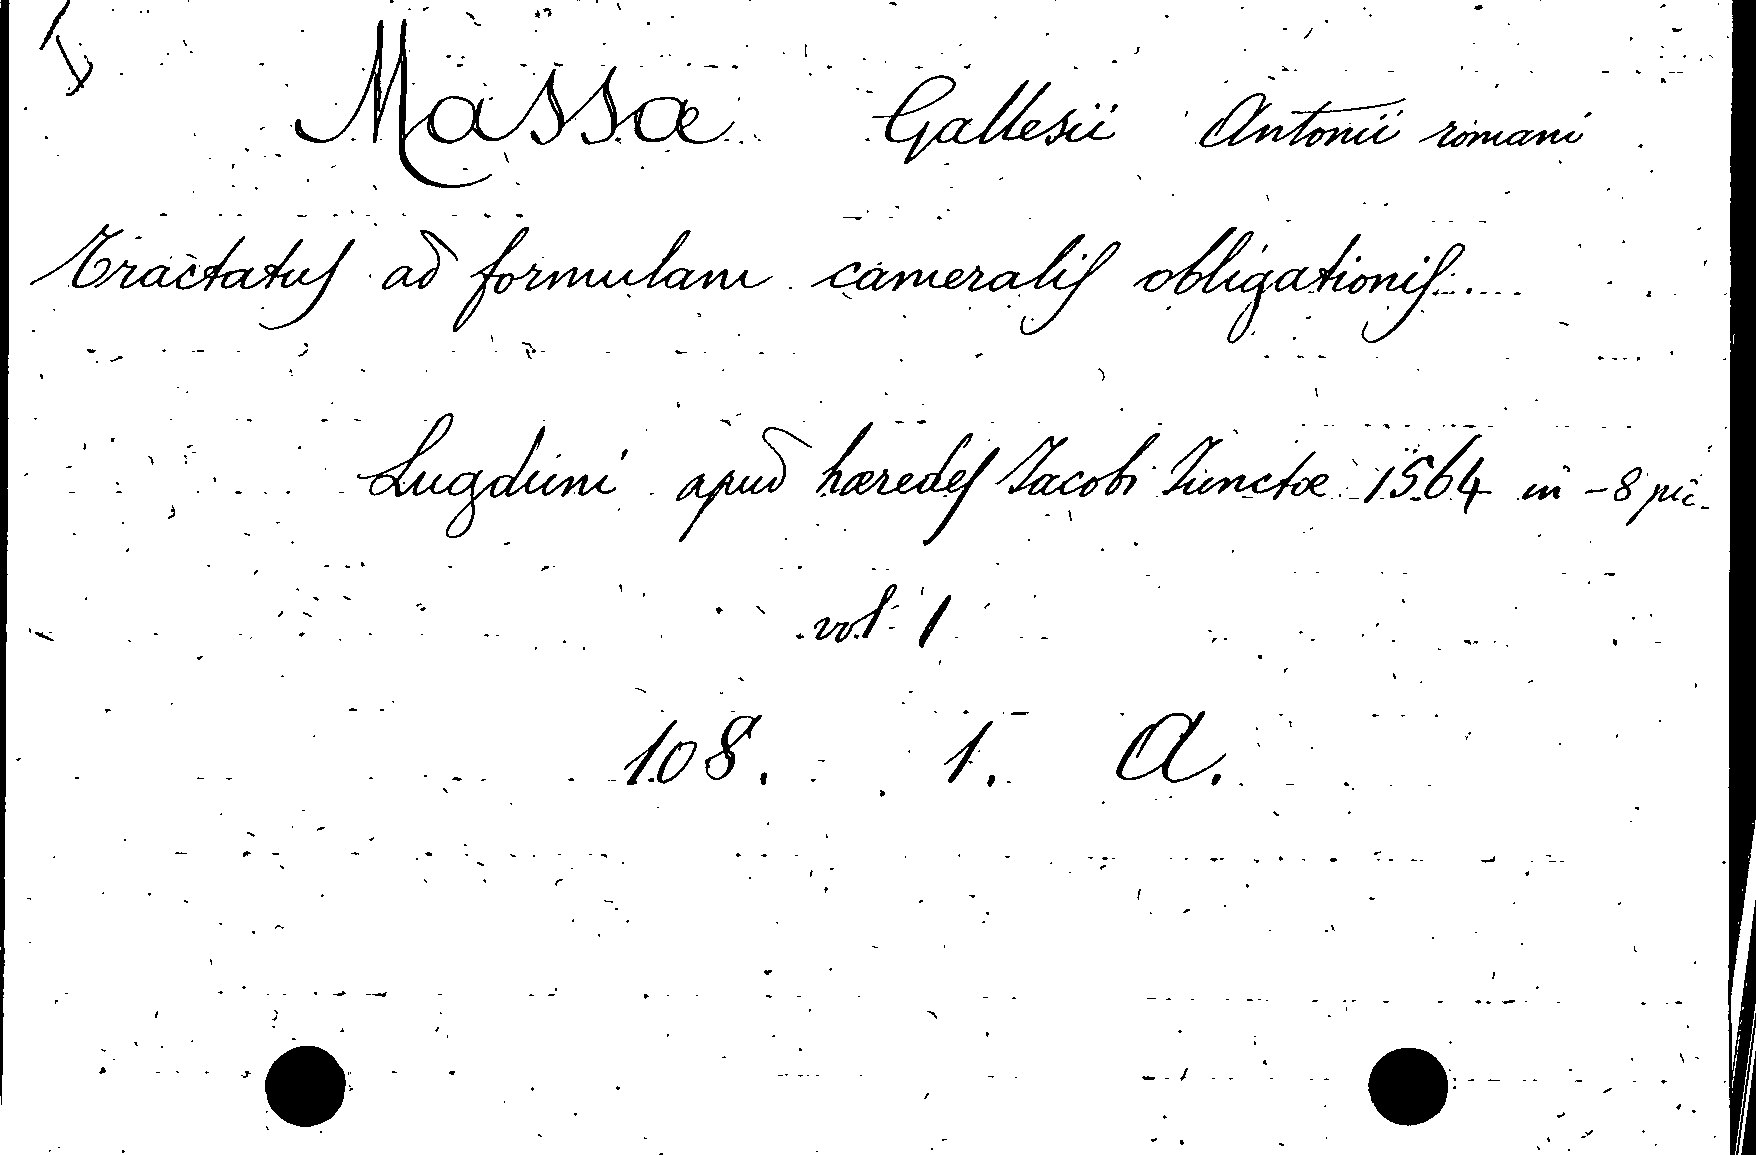 I
Massæ Gallesii Antonii romani
Tractatus ad formulam cameralis obligationis....
Lugduni apud hæredes Jacobi Junctæ 1564 in -8 pic.
vol 1
108. 1. A.